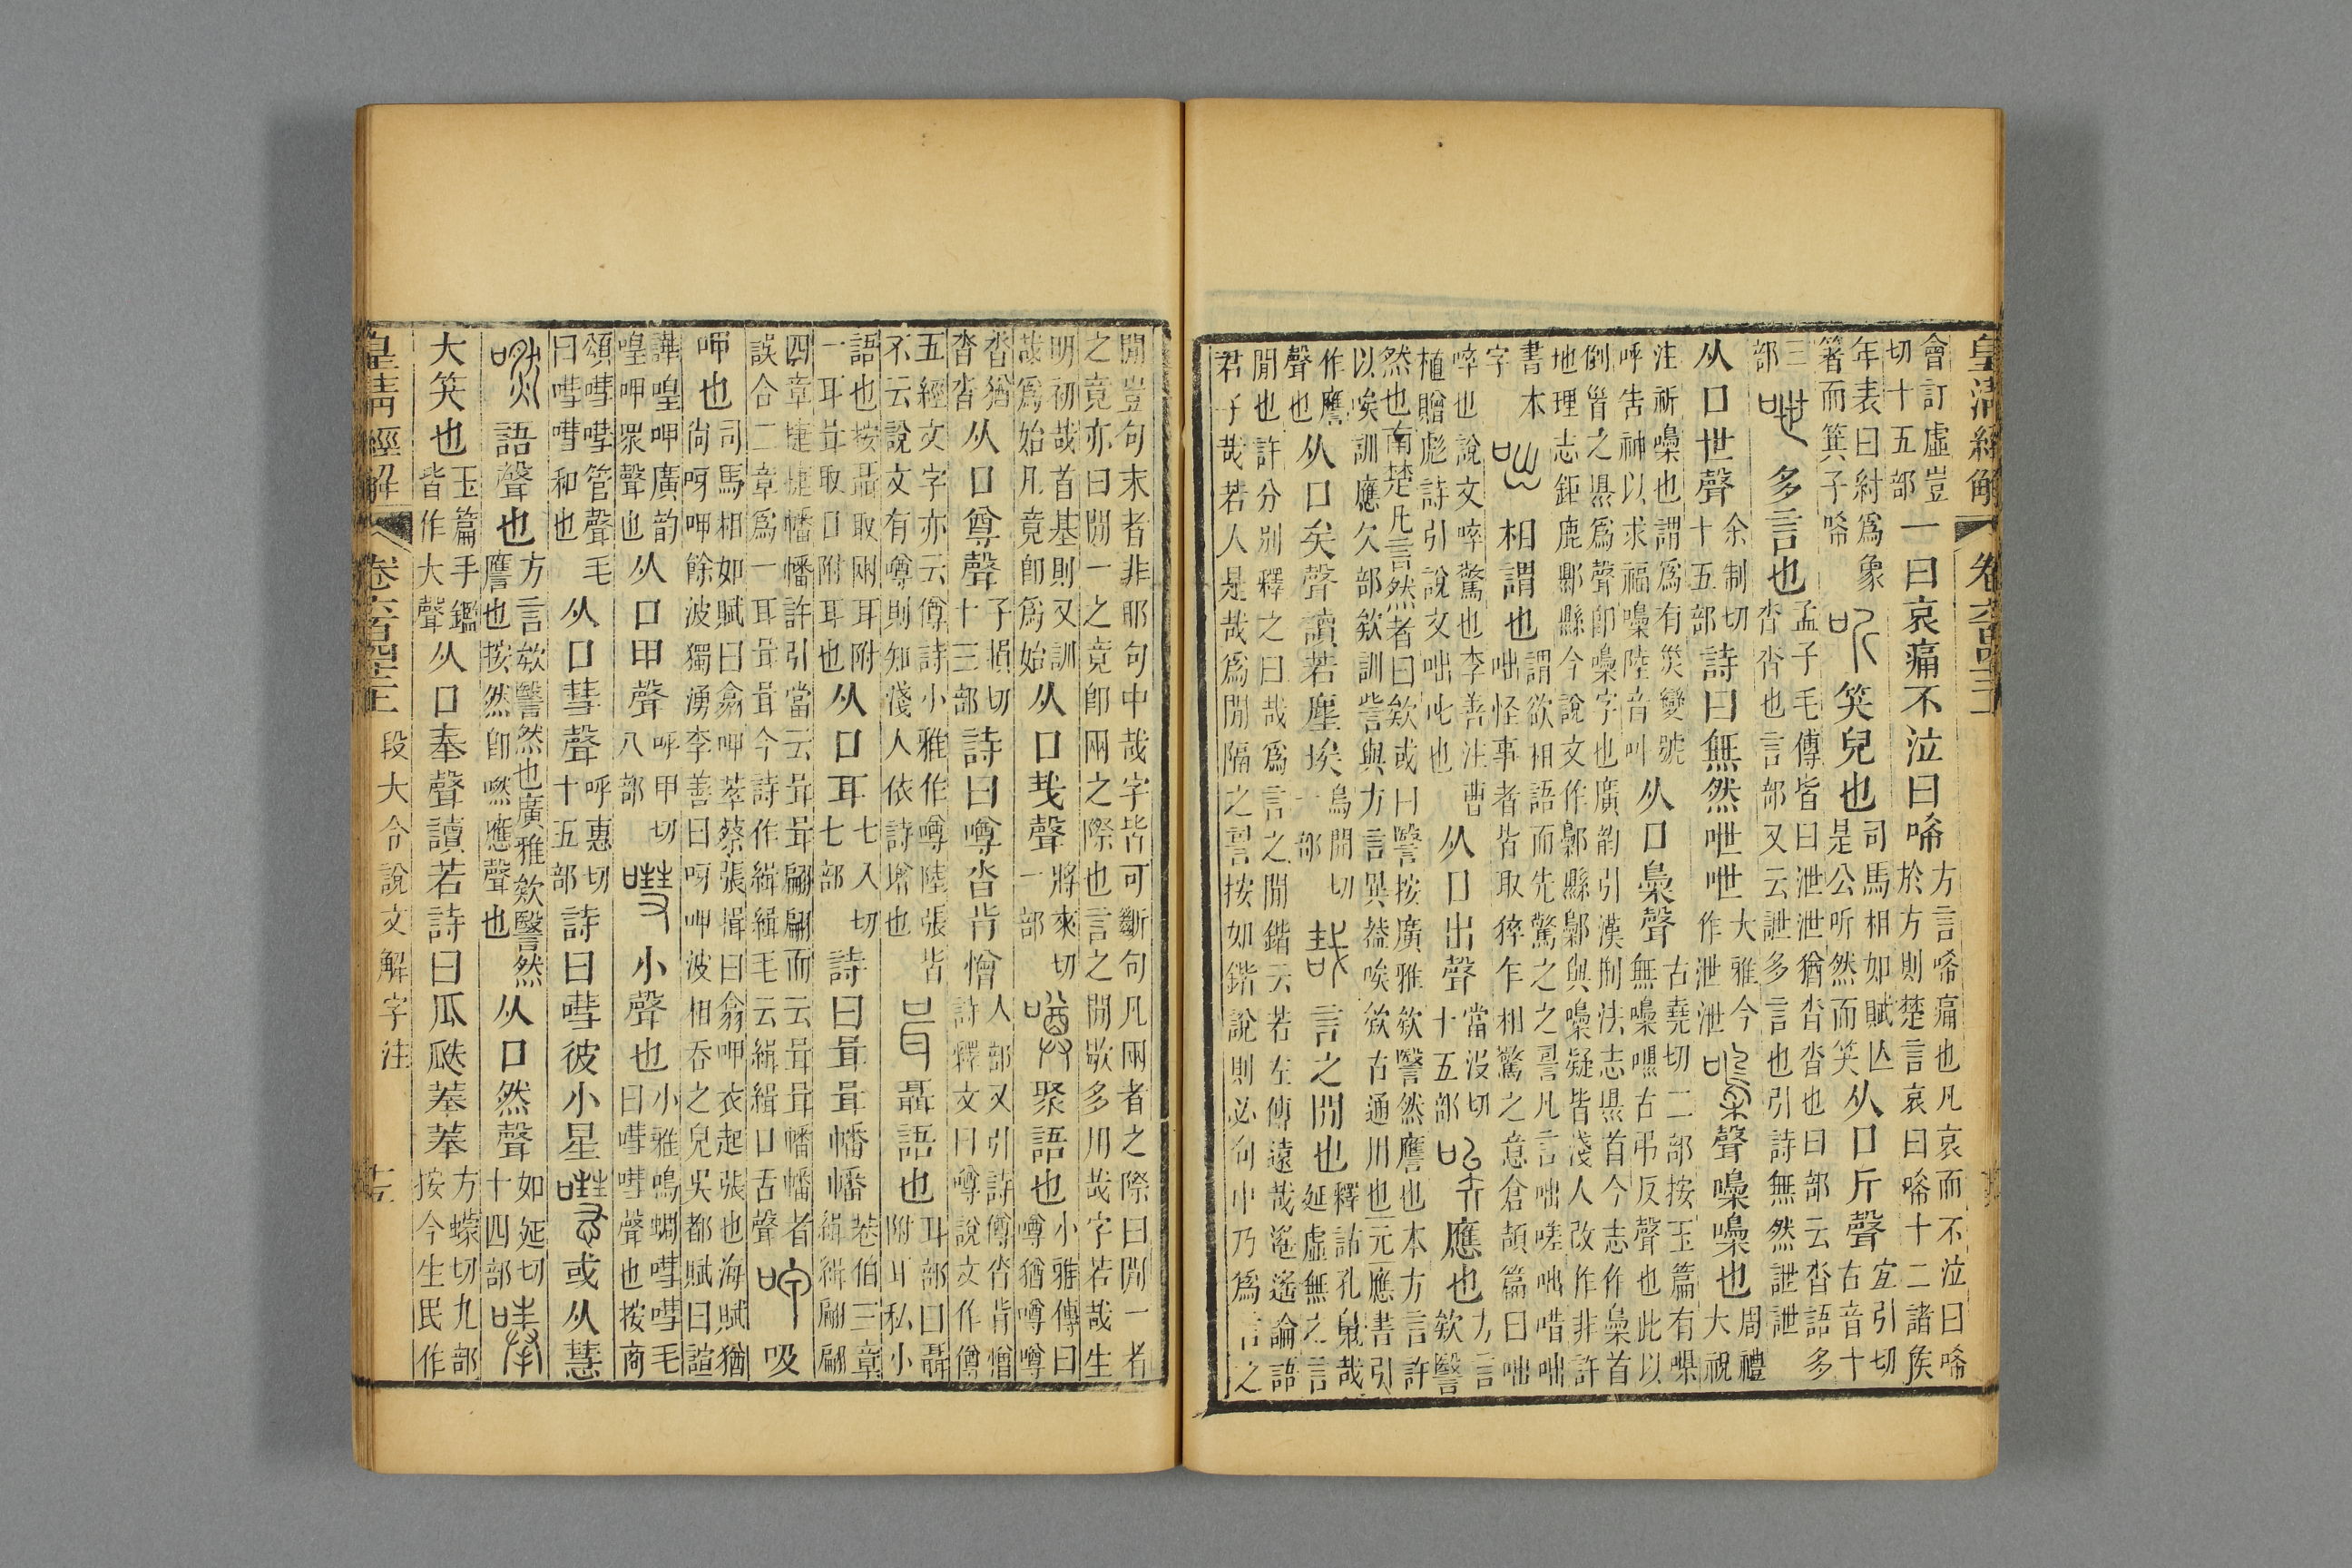 皇清經解 卷六百四十二
會訂虛豈切十五部一曰哀痛不泣曰唏方言唏痛也凡哀而不泣曰唏於方則楚言哀曰唏十二諸矦
年表曰紂爲象箸而箕子唏听笑皃也司馬相如賦亾是公听然而笑从口斤聲宜引切古音十
三部呭多言也孟子毛傳皆曰泄泄猶沓沓也曰部云沓語多沓沓也言部又云詍多言也引詩無然詍詍
从口世聲余制切十五部詩曰無然呭呭大雅今作泄泄嘄聲嘄嘄也周禮大祝
注祈嘄也謂爲有烖變號呼告神以求福嘄陸音叫从口梟聲古堯切二部按玉篇有㗕無嘄㗕古弔反聲也此以
倒𥄉之㬎爲聲卽嘄字也廣韵引漢制法志㬎首今志作梟首地理志鉅鹿鄡縣今說文作鄡縣鄡與嘄疑皆淺人改作非許
書本字咄相謂也謂欲相語而先驚之之䛐凡言咄嗟咄唶咄咄怪事者皆取猝乍相驚之意倉頡篇曰咄
啐也說文啐驚也李善注曹植贈彪詩引說文咄叱也从口出聲當没切十五部唉應也方言欸䃜
然也南楚凡言然者曰欸或曰䃜按廣雅欸䃜然譍也本方言許以唉訓應欠部欸訓訾與方言異葢唉欸古通用也元應書引
作譍聲也从口矣聲讀若塵埃烏開切一部哉言之閒也釋詁孔魄哉延虛無之言
閒也許分別釋之曰哉爲言之閒鍇云若左傳遠哉遙遙論語君子哉若人是哉爲閒隔之䛐按如鍇說則必句中乃爲言之
閒豈句末者非耶句中哉字皆可斷句凡兩者之際曰閒一者之竟亦曰閒一之竟卽兩之際也言之閒歇多用哉字若哉生
明初哉首基則又訓哉爲始凡竟卽爲始从口𢦏聲將來切一部噂聚語也小雅傳曰噂猶噂噂
沓猶沓沓从口尊聲子損切十三部詩曰噂沓背憎人部又引詩僔沓背憎詩釋文曰噂說文作僔
五經文字亦云僔詩小雅作噂陸張皆不云說文有噂則知淺人依詩增也咠聶語也耳部曰聶附耳私小
語也按聶取兩耳附一耳咠取口附耳也从口耳七入切七部詩曰咠咠幡幡巷伯三章緝緝翩翩
四章捷捷幡幡許引當云咠咠翩翩而云咠咠幡幡者誤合二章爲一耳咠咠今詩作緝緝毛云緝緝口舌聲呷吸
呷也司馬相如賦曰翕呷萃蔡張揖曰翕呷衣起張也海賦猶尙呀呷餘波獨湧李善曰呀呷波相吞之皃吳都賦曰諠
譁喤呷廣韵喤呷眾聲也从口甲聲呼甲切八部嘒小聲也小雅鳴蜩嘒嘒毛曰嘒嘒聲也按商
頌嘒嘒管聲毛曰嘒嘒和也从口彗聲呼惠切十五部詩曰嘒彼小星嚖或从慧
嘫語聲也方言欸䃜然也廣雅欸䃜然譍也按然卽嘫應聲也从口然聲如延切十四部唪
大笑也玉篇手鑑皆作大聲从口奉聲讀若詩曰瓜瓞菶菶方蠓切九部按今生民作
皇清經解 卷六百四十二 段大令說文解字注 十五